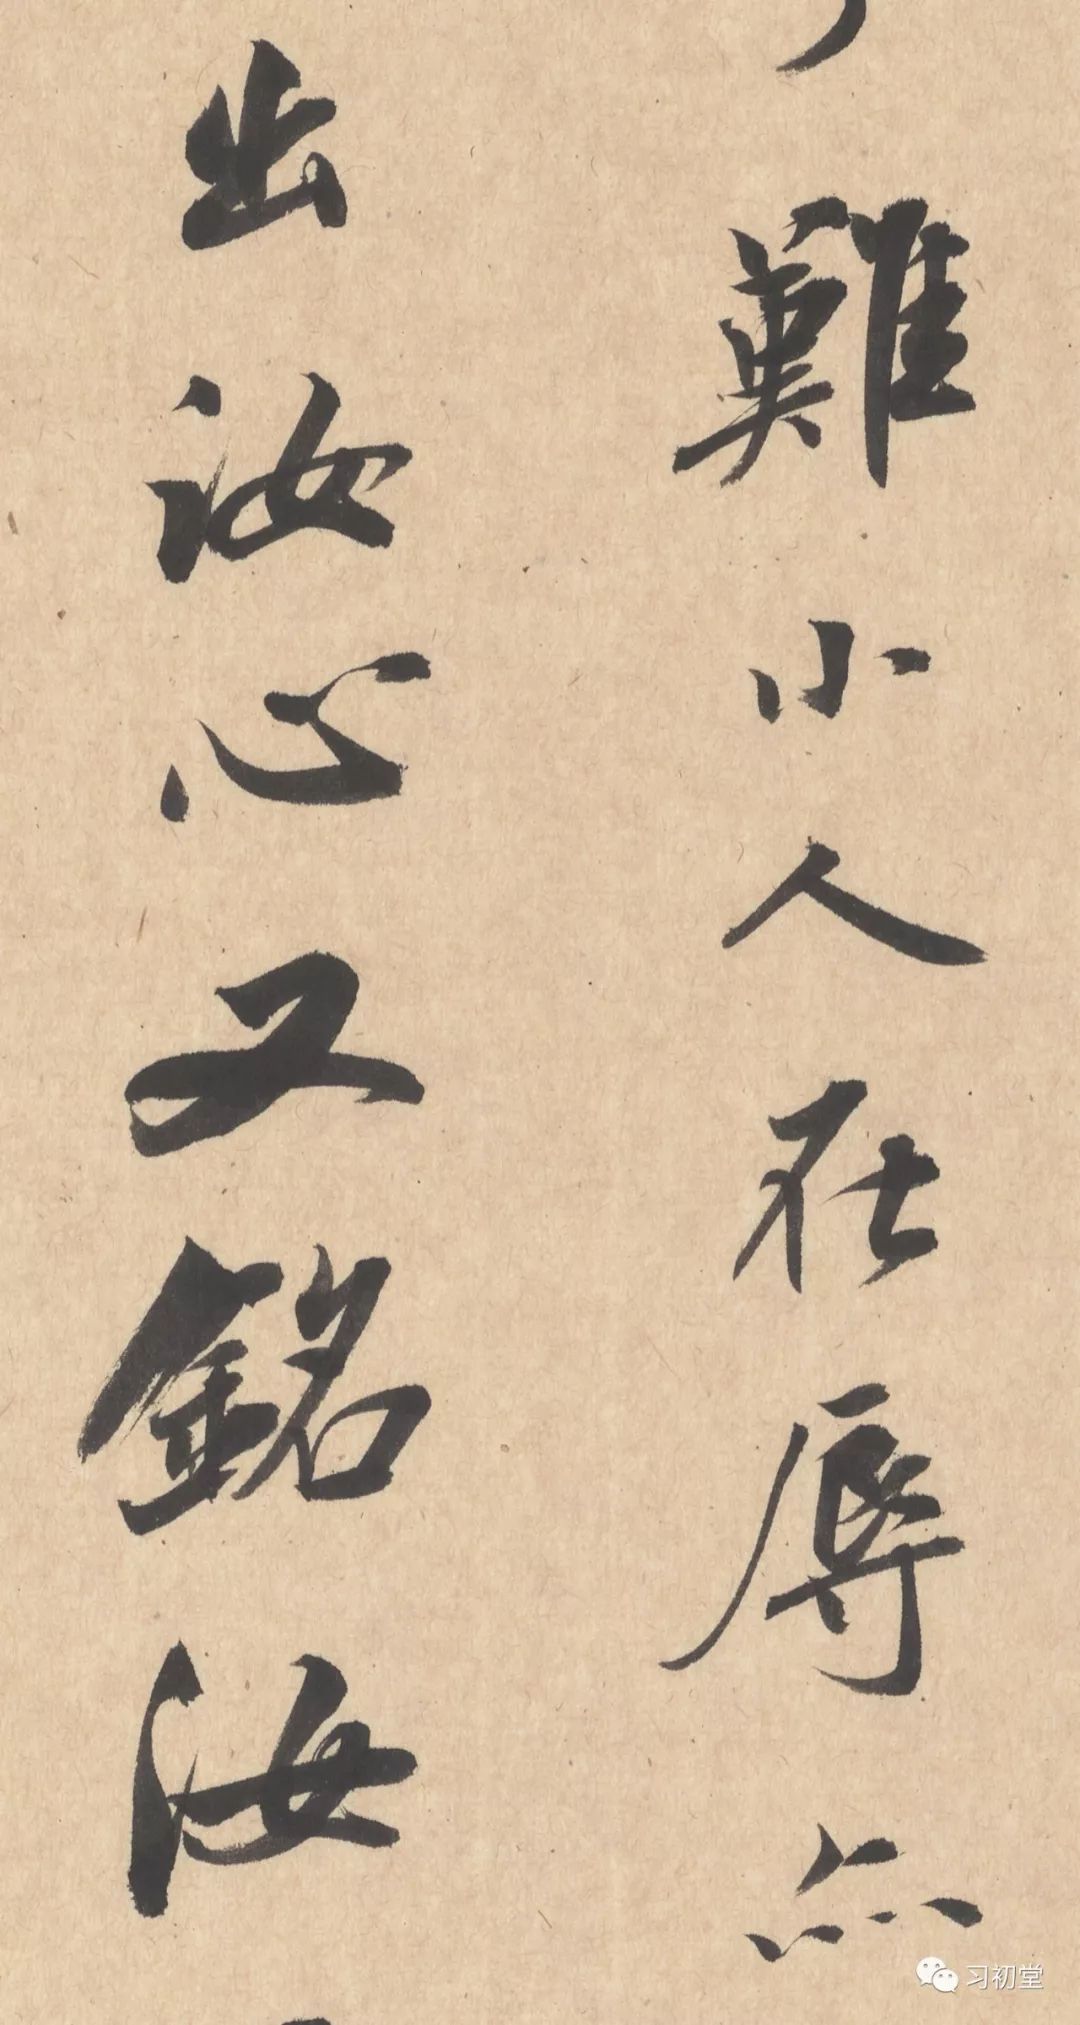 難小人在辱亦
出汝心又銘汝
习初堂